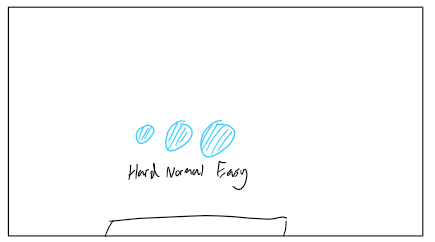 Hard Normal Easy